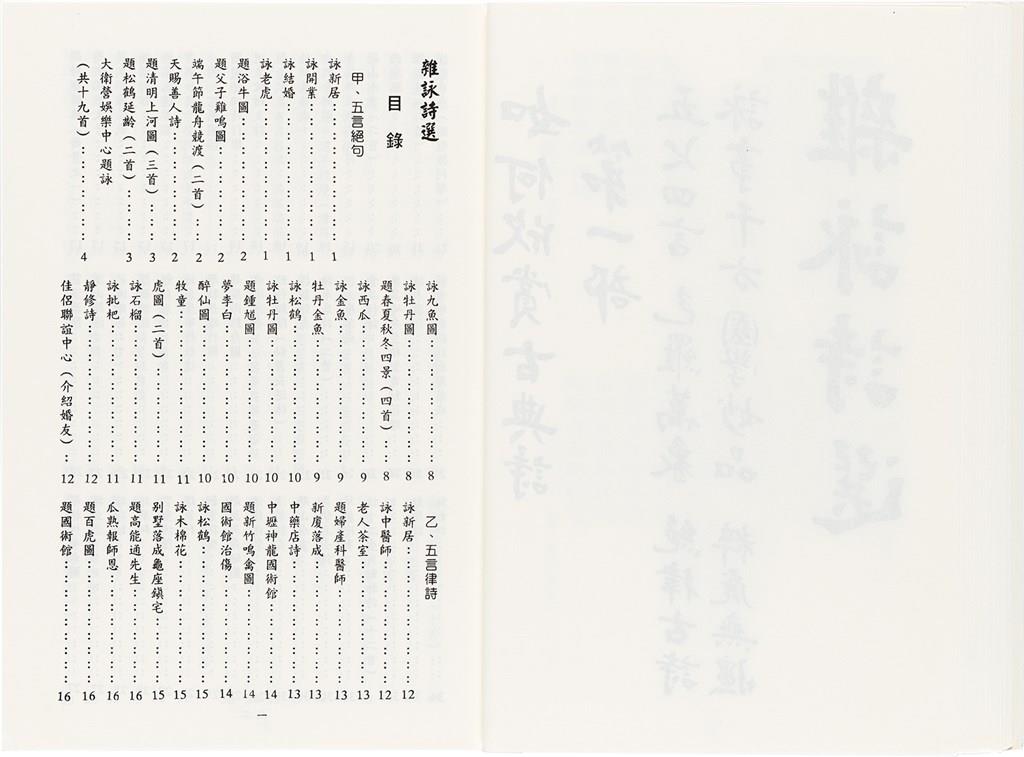 雜詠詩選
目錄
甲、五言絕句
詠新居…………1
詠開業…………1
詠結婚…………1
詠老虎…………1
題浴牛圖…………2
題父子雞鳴圖…………2
端午節龍舟競渡(二首)…………2
天賜善人詩…………2
題清明上河圖(三首)…………3
題松鶴延齡(二首)…………3
大衛營娛樂中心題詠
(共十九首)…………4
詠九魚圖…………8
詠牡丹圖…………8
題春夏秋冬四景(四首)…………8
詠西瓜…………9
詠金魚…………9
牡丹金魚…………9
詠松鶴…………10
詠牡丹圖…………10
題鍾馗圖…………10
夢李白…………10
醉仙圖…………10
牧童…………11
虎圖(二首)…………11
詠石榴…………11
詠批杷…………11
靜修詩…………12
佳侶聯誼中心(介紹婚友)…………12
乙、五言律詩
詠新居…………12
詠中醫師…………12
老人茶室…………13
題婦產科醫師…………13
新廈落成…………13
中藥店詩…………13
中壢神龍國術館…………14
題新竹鳴禽圖…………14
國術館治傷…………14
詠松鶴…………15
詠木棉花…………15
別墅落成龜座鎮宅…………15
題高能通先生…………16
瓜熟報師恩…………16
題百虎圖…………16
題國術館…………16
一